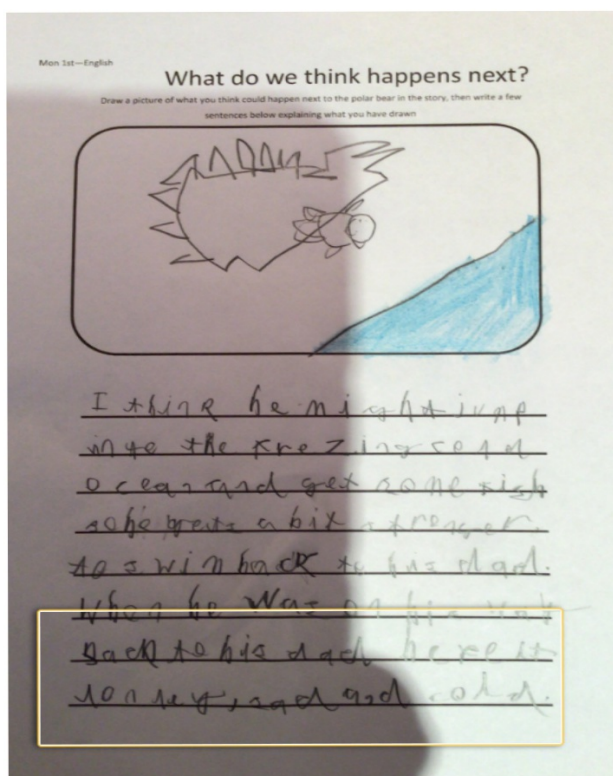 Mon 1st—English
What do we think happens next?
Draw a picture of what you think could happen next to the polar bear in the story, then write a few
sentences below explaining what you have drawn
I think he might jump
inte the frezing cold
ocean and get some fish
so he gets a bit stronger
to swim back to his dad.
When he was on his way
back to his dad he felt
lonley, sad and cold.